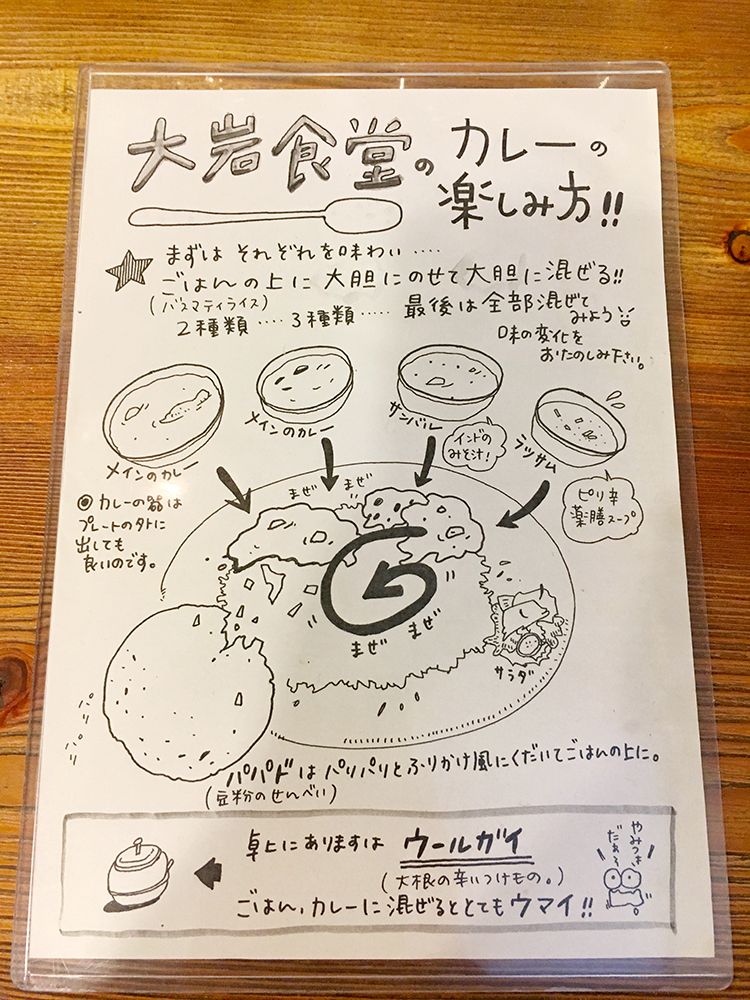 大岩食堂の カレーの
楽しみ方!!
まずは それぞれを味わい ····
ごはんの上に 大胆にのせて大胆に混ぜる!!
(バスマティライス)
2種類 ···· 3種類 ····· 最後は全部混ぜて
みよう
味の変化を
おたのしみ下さい。
メインのカレー
メインのカレー
サンバル
インドの
みそ汁!
ラッサム
ピリ辛
薬膳スープ
◎ カレーの器は
プレートの外に
出しても
良いのです。
まぜ まぜ
まぜ まぜ
サラダ
パリパリ
パパドはパリパリとふりかけ風にくだいてごはんの上に。
(豆粉のせんべい)
卓上にありますは ウールガイ
(大根の辛いつけもの。)
ごはん、カレーに混ぜるととてもウマイ!!
やみつき
だぁろ